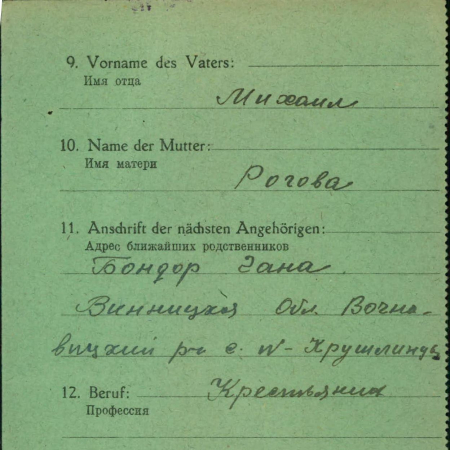 9. Vorname des Vaters:
Имя отца
Михаил
10. Name der Mutter:
Имя матери
Рогова
11. Anschrift der nächsten Angehörigen:
Адрес ближайших родственников
Бондор Гана
Винницкая Обл. Вочно-
вицкий р-о с. N-Хрушлинцы
12. Beruf:
Крестьянин
Профессия